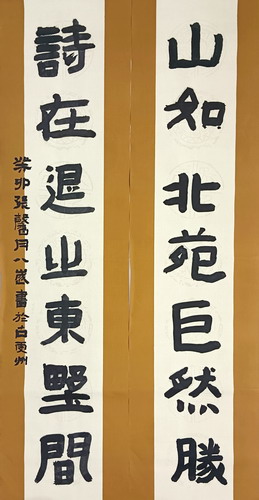 山如北苑巨然勝
詩在退之東墅間
癸卯張馨月八歲書於州